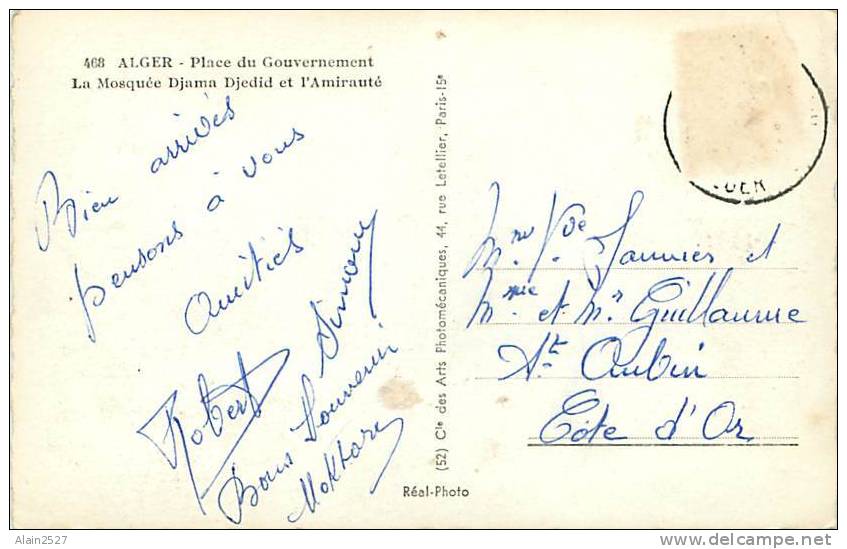 468 ALGER - Place du Gouvernement
La Mosquée Djama Djedid et l'Amirauté
Bien arrivés
pensons à vous
Amitiés
Simone
Robert
Bons Souvenir
Mokhtar
(52) Cie des Arts Photomécaniques, 44, rue Letellier, Paris-15e
Réal-Photo
GER
Mme Vve Jannier et
Mme et Mr Guillaume
St. Aubin
Côte d'Or
Alain2527
delcampe.net